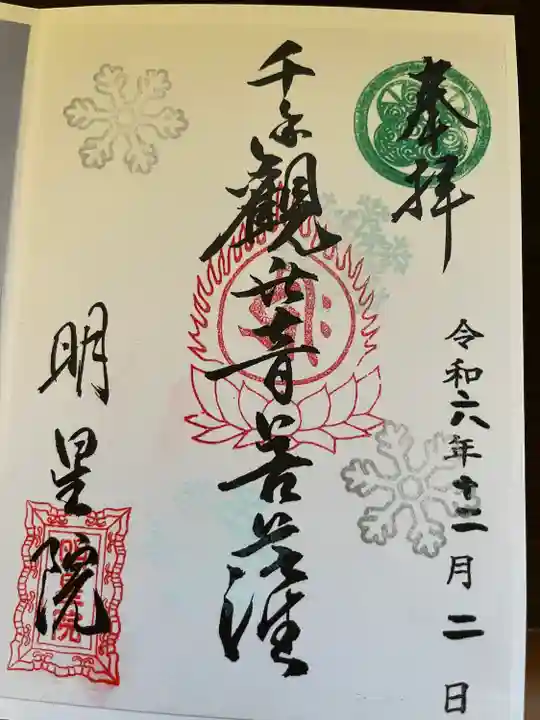 奉拝
令和六年十二月二日
千手観世音菩薩
明星院
明星院